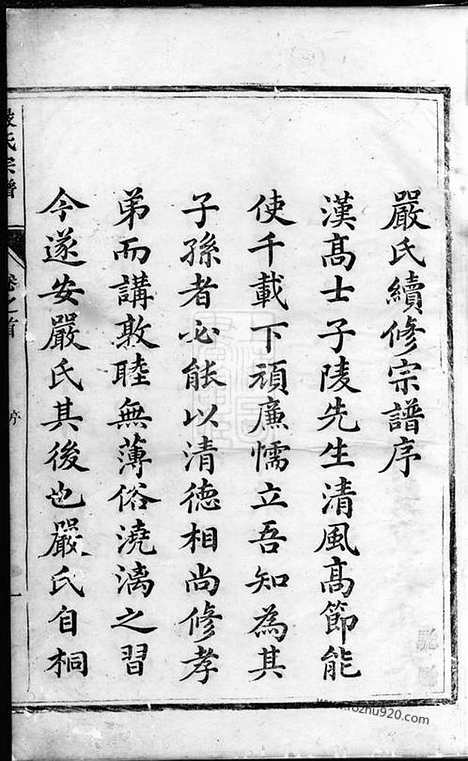 嚴氏續修宗譜序
漢高士子陵先生清風高節能
使千載下頑廉懦立吾知為其
子孫者必能以清德相尚修孝
弟而講敦睦無薄俗澆漓之習
今遂安嚴氏其後也嚴氏自桐
嚴氏宗譜
卷之首
序
一
www.rozhu920.com